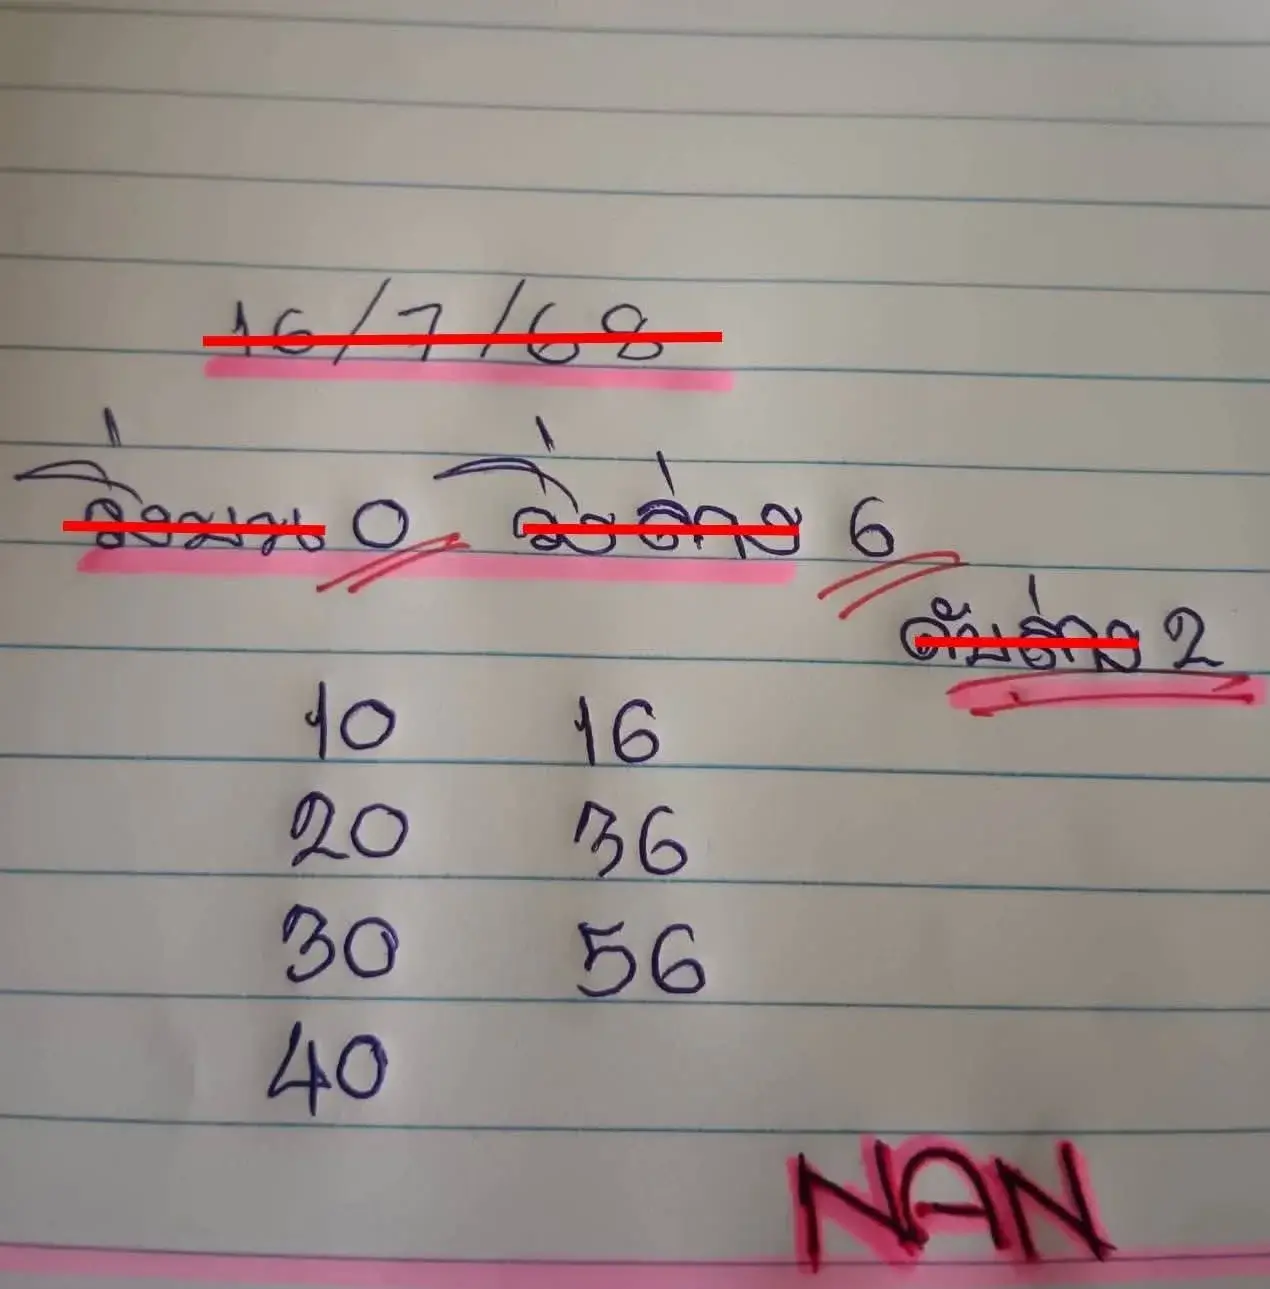 16/7/68
วิ่งบน 0 วิ่งล่าง 6
ดับล่าง 2
10 16
20 36
30 56
40
NAN